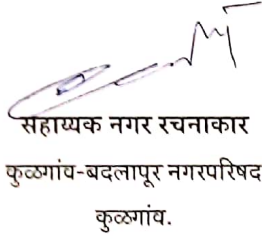 सहाय्यक नगर रचनाकार
कुळगांव-बदलापूर नगरपरिषद
कुळगांव.